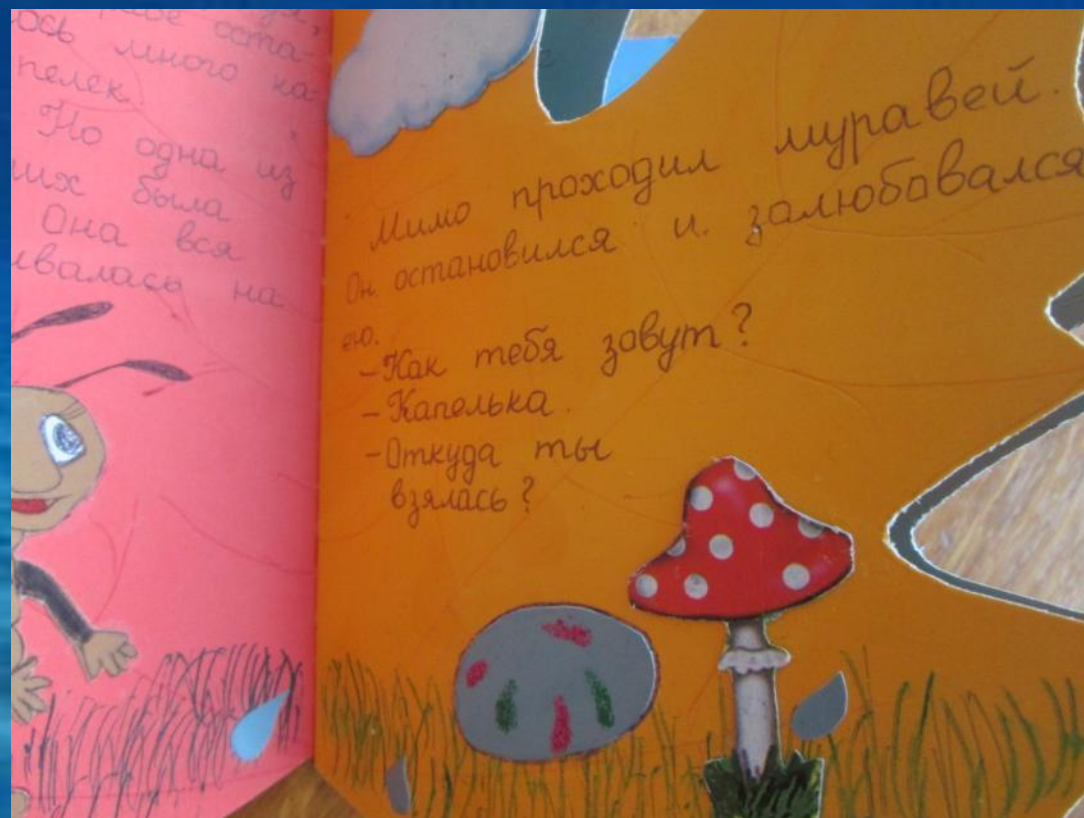 оста-
ось много ка-
пелек.
Но одна из
них была
Она вся
ивалась на
Мимо проходил муравей.
Он остановился и залюбовался
ею.
-Как тебя зовут?
-Капелька.
-Откуда ты
взялась?